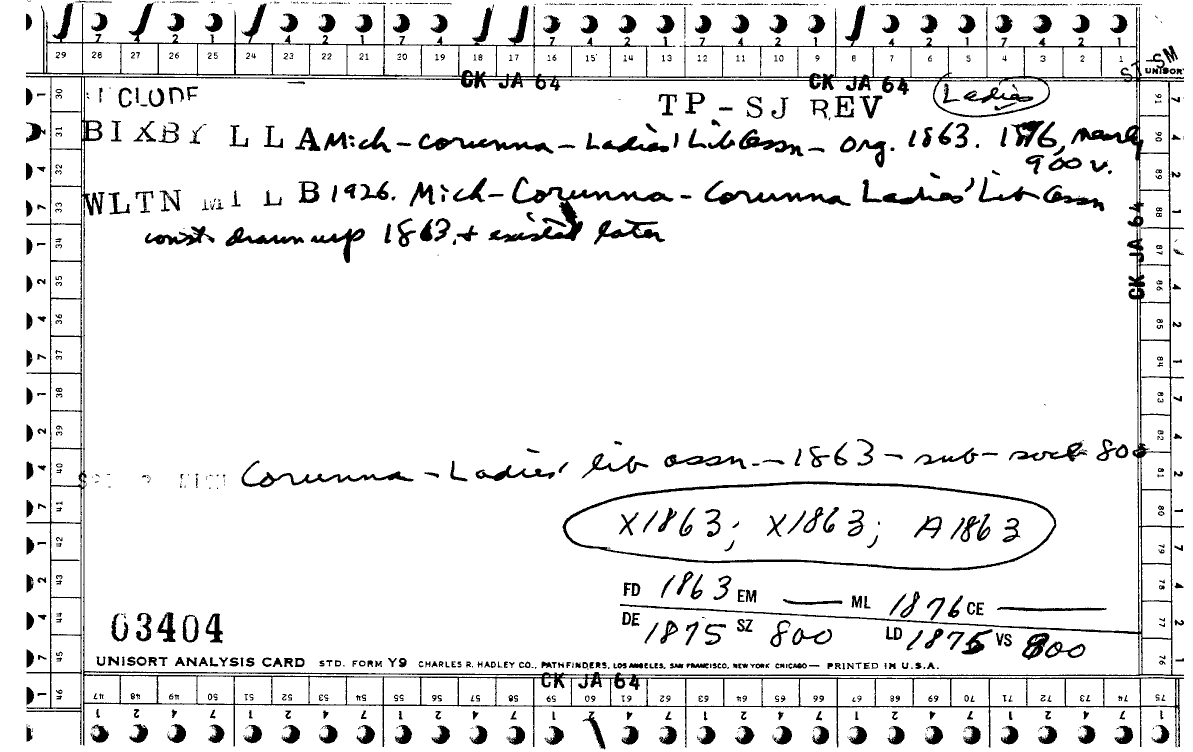 29 28 27 26 25 24 23 22 21 20 19 18 17 16 15 14 13 12 11 10 9 8 7 6 5 4 3 2 1
CK JA 64 CK JA 64 UNISORT
TP - SJ REV Ladies
BIXBY L L A Mich - Corunna - Ladies' Lib Assn - Org. 1863. 1876, nearly
900 v.
WLTN MI L B 1926. Mich - Corunna - Corunna Ladies' Lib Assn
const. drawn up 1863, + existed later
CK JA 64
Corunna - Ladies' lib assn - 1863 - sub - soc - 800
X1863; X1863; A1863
FD 1863 EM — ML 1876 CE —
DE 1875 SZ 800 LD 1875 VS 800
03404
UNISORT ANALYSIS CARD STD. FORM Y9 CHARLES R. HADLEY CO., PATHFINDERS, LOS ANGELES, SAN FRANCISCO, NEW YORK CHICAGO — PRINTED IN U.S.A.
CK JA 64
47 48 49 50 51 52 53 54 55 56 57 58 59 60 61 62 63 64 65 66 67 68 69 70 71 72 73 74 75